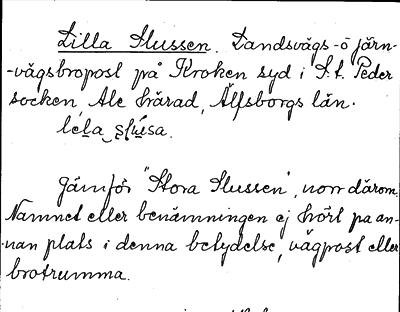 Lilla Slussen. Landsvägs- o järn-
-vägsbropost på Kroken syd i S:t. Peder
socken, Ale härad, Älfsborgs län.
lela slusa.
Jämför "Stora Slussen", norr därom.
Namnet eller benämningen ej hört på an-
-nan plats i denna betydelse, vägpost eller
brotrumma.